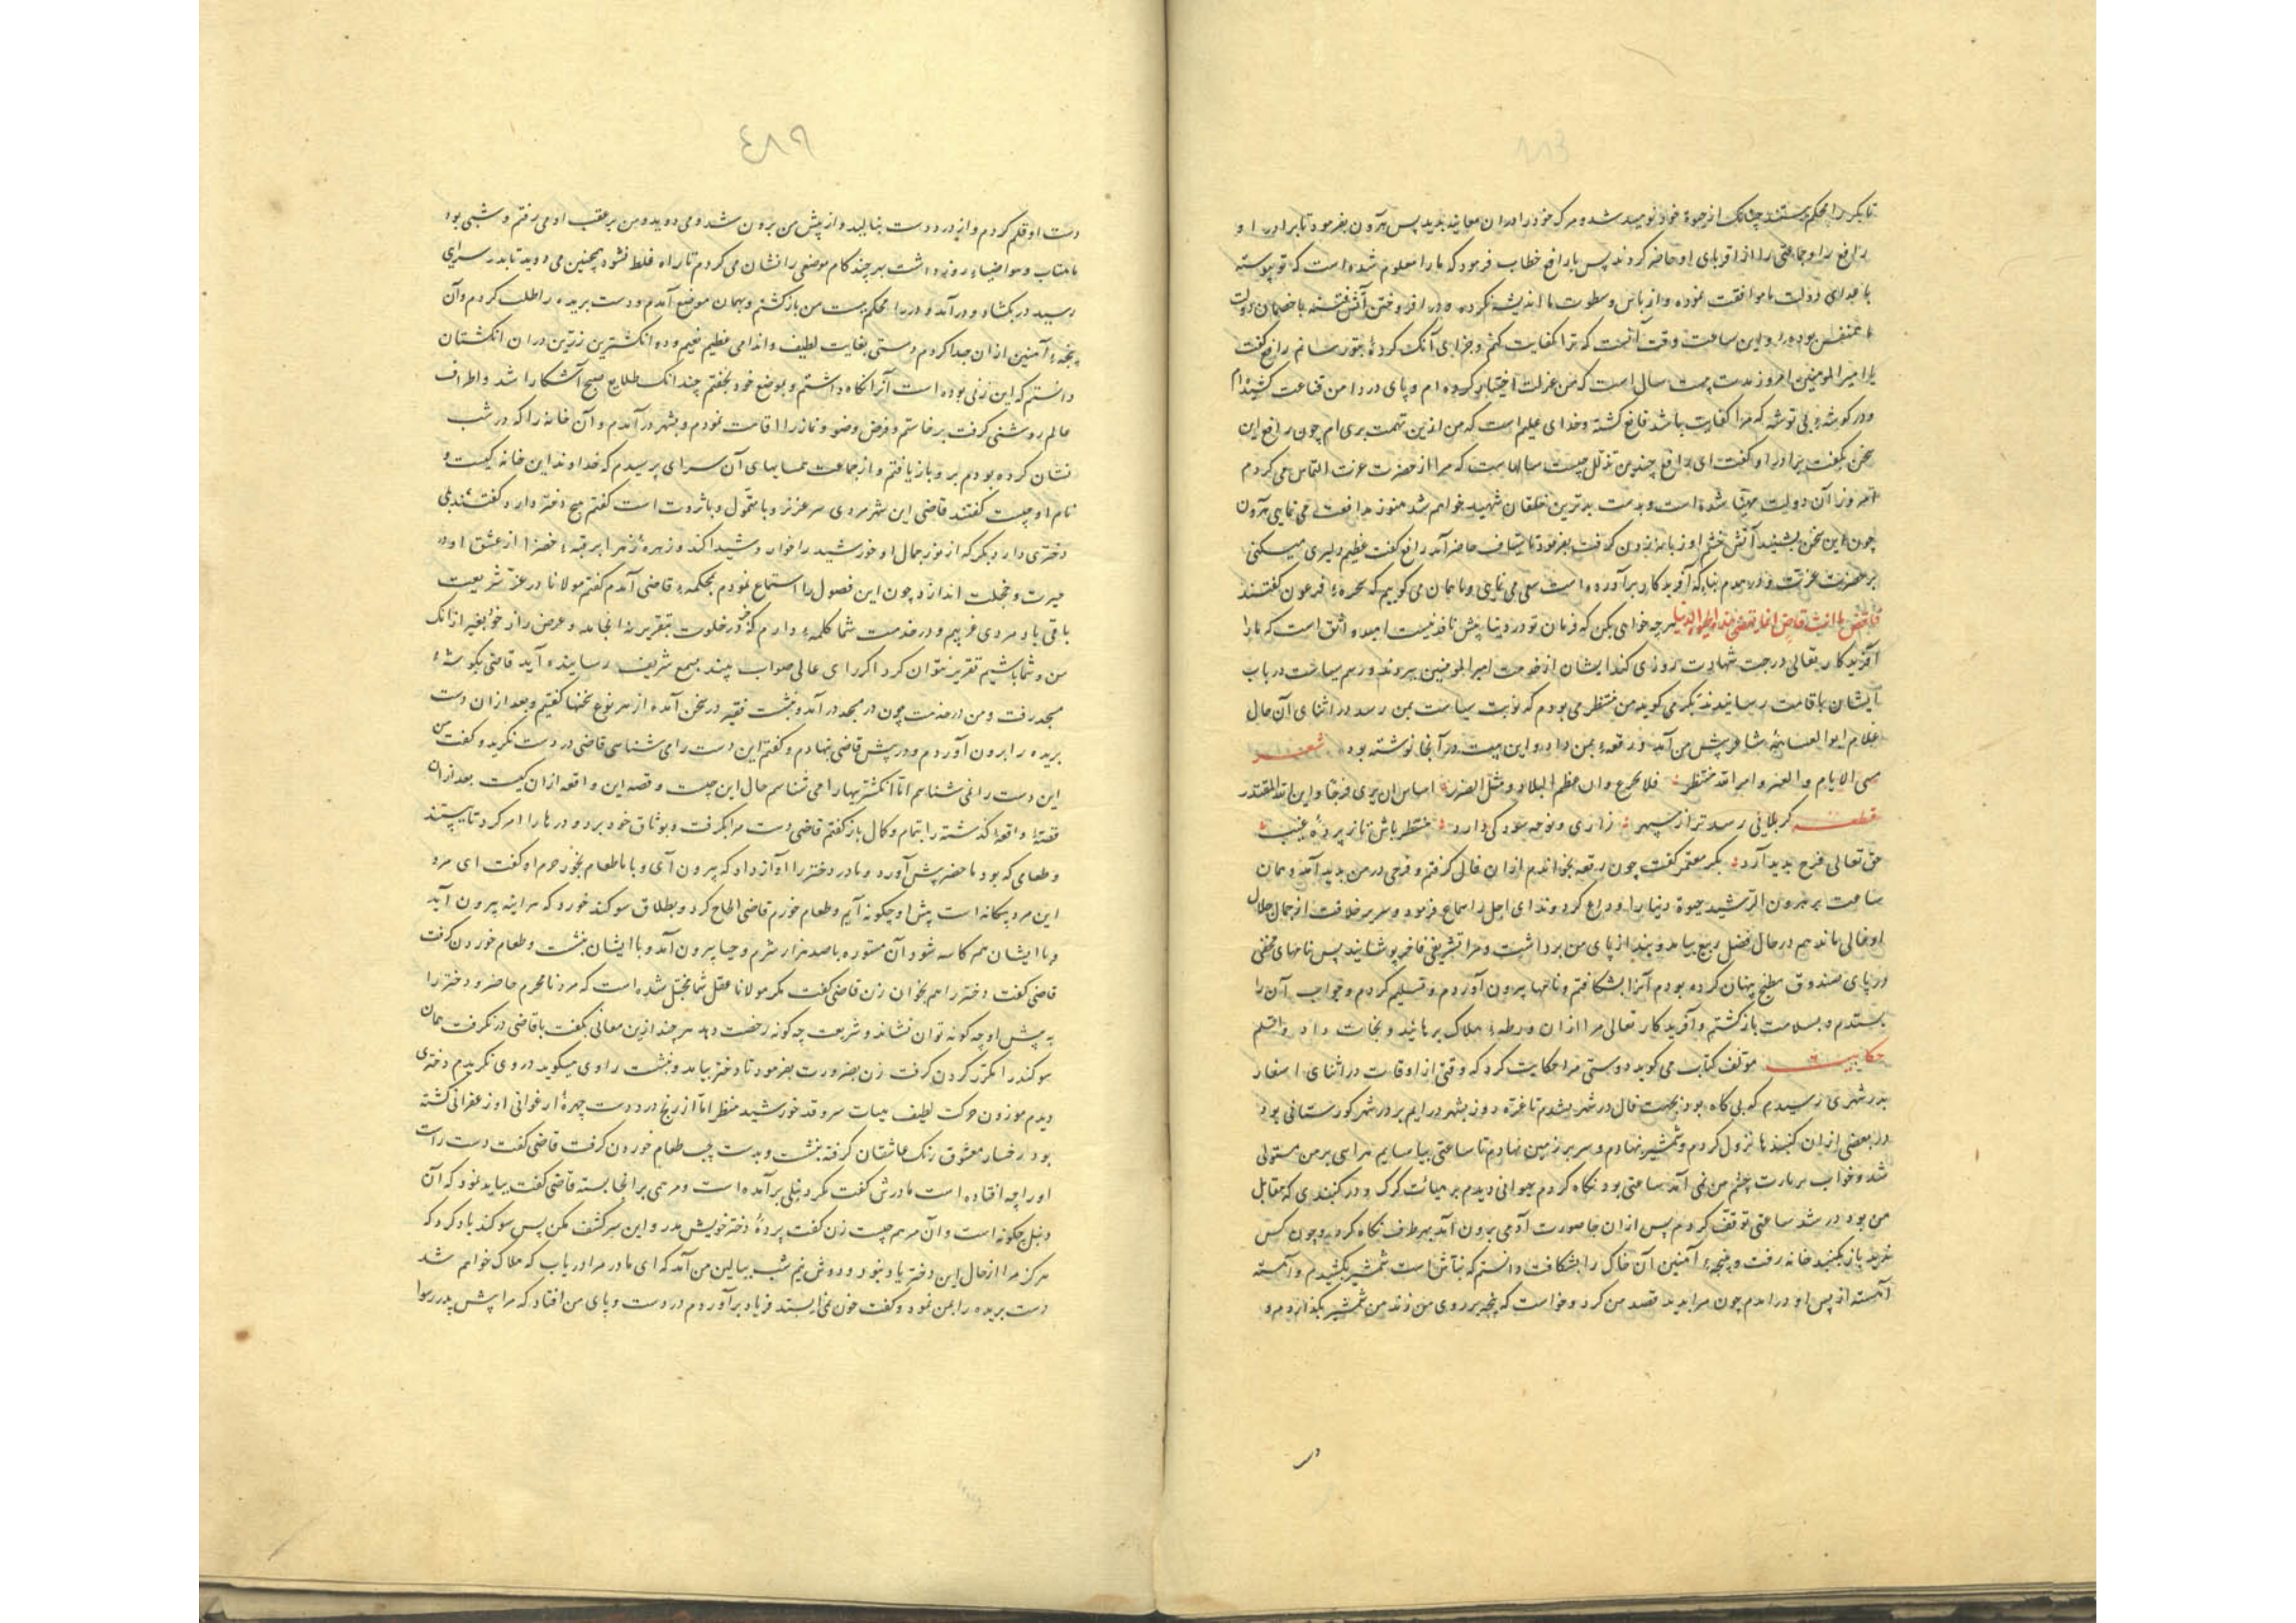 تا بکر را محکم ببستند چنانک از حیوة خود نومید شد و مرک خود را در ان معاینه بدید پس هرون بفرمود تا برادر او
رافع را و جماعتی را از اقربای او حاضر کردند پس با رافع خطاب فرمود که ما را معلوم شده است که تو پیوسته
با عدای دولت ما موافقت نموده و از باس و سطوت ما اندیشه نکرده و در افروختن آتش فتنه با خصمان دولت
متفق بوده و این ساعت وقت آنست که ترا کفایت کنم و جزای آنک کردۀ بتو رسانم رافع گفت
یا امیر المومنین امروز مدت بیست سال است که من عزلت اختیار کرده ام و پای در دامن قناعت کشیده ام
و در کوشۀ بی توشه که مرا کفایت باشد قانع کشته و خدای علیم است که من ازین تهمت بری ام چون رافع این
سخن بگفت برادر او گفت ای رافع چندین تذلل چیست سالهاست که مرا از حضرت عزت التماس می کردم
امروز آن دولت مهیا شده است و بدست بدترین خلقان شهید خواهم شد هنوز مدافعت می نمایی هرون
چون این سخن بشنید آتش خشم او زبانه زدن گرفت بفرمود تا سیاف حاضر آمد رافع گفت عظیم دلیری میکنی
بر حضرت عزت و در هدم بنا که آفریدکار برآورده است سعی می نمایی و ما همان می کوییم که سحرۀ فرعون گفتند
فاقض ما انت قاض انما تقضی هذه الحیوة الدنیا هرچه خواهی بکن که فرمان تو در دنیا پیش نافذ نیست امید واثق است که ما را
آفریدکار تعالی درجت شهادت روزی کند ایشان از خدمت امیر المومنین بیرون بردند و رسم سیاست در باب
ایشان باقامت رسانیدند بکر می کوید من منتظر می بودم که نوبت سیاست بمن رسد در اثنای آن حال
غلام ابو العتاهیۀ شاعر پیش من آمد و رقعۀ بمن داد و این بیت در آنجا نوشته بود شعر
هی الایام و العبر و امر الله منتظر فلا تجزع و ان عظم البلا و مسّک الضرر اتیاس ان تری فرجا و این الله المقتدر
قطعه کر بلائی رسد ترا ز سپهر زاری و نوحه سود کی دارد منتظر باش تا ز پردۀ غیب
حق تعالی فرج پدید آرد بکر معتمر گفت چون رقعه بخواندم از ان فال گرفتم و فرحی در من پدید آمد و همان
ساعت بر هرون الرشید حیوة دنیا را وداع کرد و ندای اجل را سماع فرمود و سریر خلافت از جمال جلال
او خالی ماند هم در حال فضل ربیع بیامد و بند از پای من برداشت و مرا تشریفی فاخر پوشانید پس نامهای مخفی
در پای صندوق مطبخ پنهان کرده بودم آنرا بشکافتم و نامها بیرون آوردم و تسلیم کردم و جواب آن را
بستدم و بسلامت بازگشتم و آفریدکار تعالی مرا از ان ورطۀ هلاک برهانید و نجات داد و السلم
حکایت مؤلف کتاب می کوید دوستی مرا حکایت کرد که وقتی از اوقات در اثنای اسفار
بدر شهری رسیدم که بی کاه بود بجهت فال در شهر نشدم تا غرّه روز بشهر درایم بر در شهر کورستانی بود
در بعضی از ان کنبدها نزول کردم و شمشیر نهادم و سر بر زمین نهادم تا ساعتی بیاسایم هراسی بر من مستولی
شد و خواب بر یارت چشم من نمی آمد ساعتی بود نکاه کردم حیوانی دیدم بر هیأت کرک و در کنبدی که مقابل
من بود در شد ساعتی توقف کردم پس از ان جا صورت آدمی برون آمد بهر طرف نکاه کرد و چون کس
ندید باز بکنبد خانه رفت و پنجۀ آهنین آن خاک را بشکافت دانستم که نبّاش است شمشیر بکشیدم و آهسته
آهسته از پس او در آمدم چون مرا بدید قصد من کرد و خواست که پنجه بر روی من زند من شمشیر بکذاردم و
در
٤٨٩
دست او قلم کردم و او از درد دست بنالید و از پیش من برون شد و می دوید و من بر عقب او می رفتم و شبی بود
با مهتاب و هوا ضیاء روز داشت بهر چند کام موضعی را نشان می کردم تا راه غلط نشود همچنین می دوید تا بدر سرای
رسید در بکشاد و در آمد و در را محکم ببست من بازگشتم و بهمان موضع آمدم و دست بریده را طلب کردم و آن
پنجۀ آهنین از ان جدا کردم دستی بغایت لطیف و اندامی عظیم نعیم و ده انگشترین زرّین در ان انگشتان
دانستم که این زنی بوده است آنرا نکاه داشتم و بموضع خود بخفتم چندانک طلایع صبح آشکارا شد و اطراف
عالم روشنی گرفت برخاستم و فرض وضو و نماز را اقامت نمودم و بشهر در آمدم و آن خانه را که در شب
نشان کرده بودم برو باز یافتم و از جماعت همسایهای آن سرای پرسیدم که خداوند این خانه کیست و
نام او چیست گفتند قاضی این شهر مردی سرعزیز و با تموّل و با ثروت است گفتم هیچ دختر دارد گفتند بلی
دختری دارد بکر که از نور جمال او خورشید را خوار و شیدا کند و زهرۀ زهرا بر قبۀ خضرا از عشق او در
حیرت و خجلت اندازد چون این فصول را استماع نمودم بمحکمۀ قاضی آمدم گفتم مولانا در عزّ شریعت
باقی باد مردی غریبم و در خدمت شما کلمۀ دارم که جز در خلوت بتقریر نه انجامد و عرض راز خود بغیر از انک
من و شما باشیم تقریر نتوان کرد اکر رای عالی صواب بیند بسمع شریف رسانیده آید قاضی بکوشۀ
مسجد رفت و من در خدمت چون در مسجد در آمد و بنشست فقیه در سخن آمد و از هر نوع سخنها گفتیم و بعد از ان دست
بریده را برون آوردم و در پیش قاضی نهادم و گفتم این دست را می شناسی قاضی در دست نگرید و گفت من
این دست را نمی شناسم امّا انگشتریها را می شناسم حال این چیست و قصه این واقعه از ان کیست بعد از ان
قصۀ واقعۀ گذشته را بتمام و کمال باز گفتم قاضی دست مرا بگرفت و بوثاق خود برد و درها را امر کرد تا ببستند
و طعامی که بود ما حضر پیش آورد و مادر دختر را آواز داد که بیرون آی و با ما طعام بخور حرم او گفت ای مرد
این مرد بیکانه است پیش او چکونه آیم و طعام خورم قاضی الحاح کرد و بطلاق سوکند خورد که هراینه بیرون آید
و با ایشان هم کاسه شود آن مستوره با صد هزار شرم و حیا بیرون آمد و با ایشان بنشست و طعام خوردن گرفت
قاضی گفت دختر را هم بخوان زن قاضی گفت مکر مولانا عقل شما مختل شده است که مرد نامحرم حاضر و دختر را
به پیش او چه کونه توان نشاند و شریعت چه کونه رخصت دهد هر چند ازین معانی بگفت با قاضی در نکرفت همان
سوکند را مکرر کردن گرفت زن بضرورت بفرمود تا دختر بیامد و بنشست راوی میکوید در وی نگریدم دختری
دیدم موزون حرکت لطیف هیات سرو قد خورشید منظر امّا از رنج درد دست چهرۀ ارغوانی او زعفرانی کشته
بود رخسار معشوق رنک عاشقان گرفته بنشست و بدست چپ طعام خوردن گرفت قاضی گفت دست راست
او را چه افتاده است مادرش گفت مکر دنبلی برآمده است و مرهمی برانجا بسته قاضی گفت بباید نمود که آن
دنبل چکونه است و آن مرهم چیست زن گفت پردۀ دختر خویش مدر و این سر کشف مکن پس سوکند یاد کرد که
هرکز مرا از حال این دختر یاد نبود و دوش نیم شب ببالین من آمد که ای مادر مرا دریاب که هلاک خواهم شد
دست بریده را بمن نمود و گفت خون نمی ایستد فریاد برآوردم در دست و پای من افتاد که مرا پیش پدر رسوا